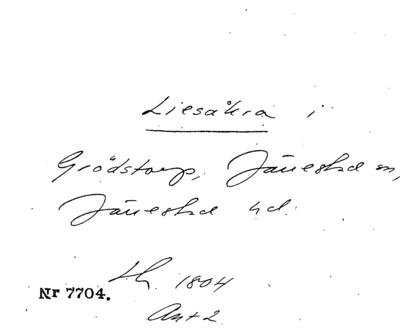 Liesåkra i
Grödstorp, Järrestad sn,
Järrestad hd.
1804
Nr 7704.
Ant 2